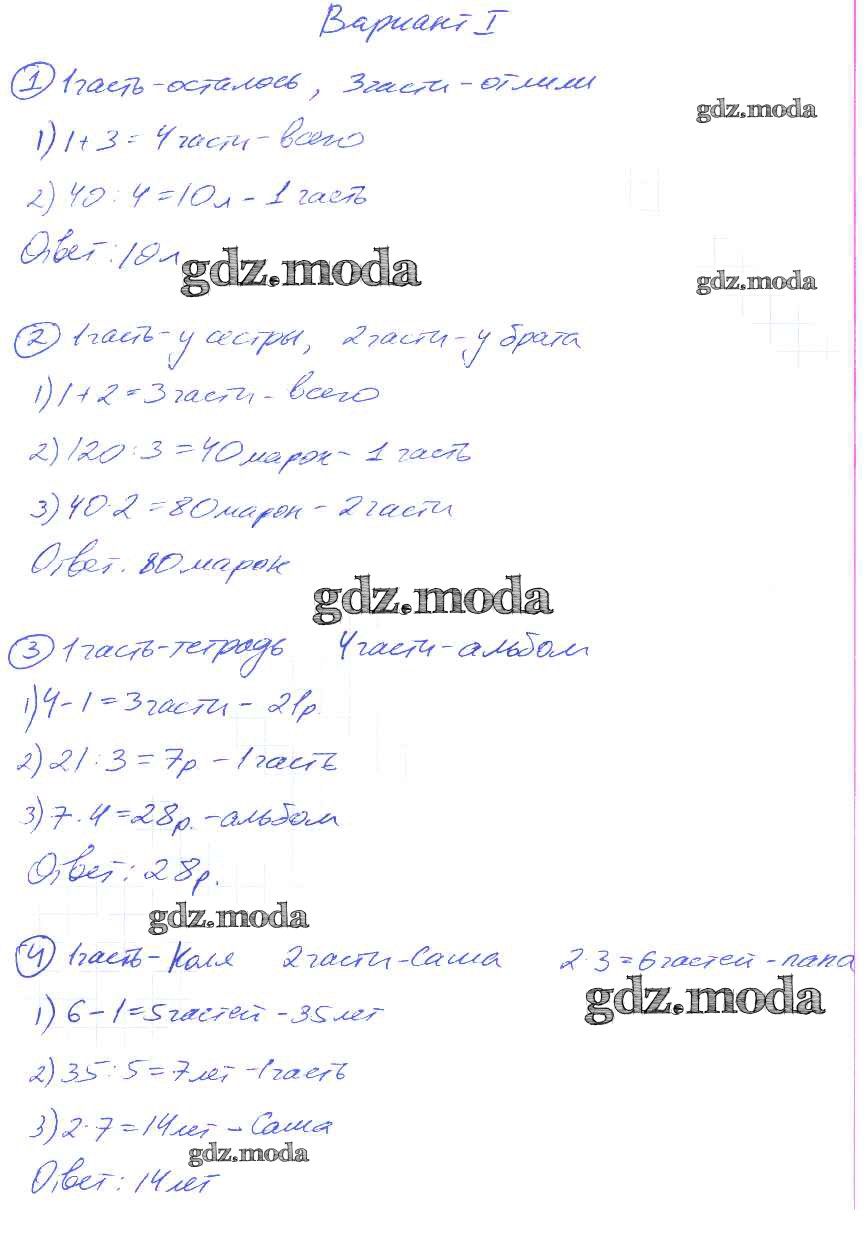 Вариант I
① 1часть-осталось, 3части-отлили
gdz.moda
1) 1+3=4части-всего
2) 40:4=10л-1часть
Ответ: 10л
gdz.moda
gdz.moda
② 1часть-у сестры, 2части-у брата
1) 1+2=3части-всего
2) 120:3=40марок-1часть
3) 40·2=80марок-2части
Ответ: 80марок
gdz.moda
③ 1часть-тетрадь 4части-альбом
1) 4-1=3части-21р.
2) 21:3=7р-1часть
3) 7·4=28р.-альбом
Ответ: 28р.
gdz.moda
④ 1часть-Коля 2части-Саша 2·3=6частей-папа
gdz.moda
1) 6-1=5частей-35лет
2) 35:5=7лет-1часть
3) 2·7=14лет-Саша
gdz.moda
Ответ: 14лет